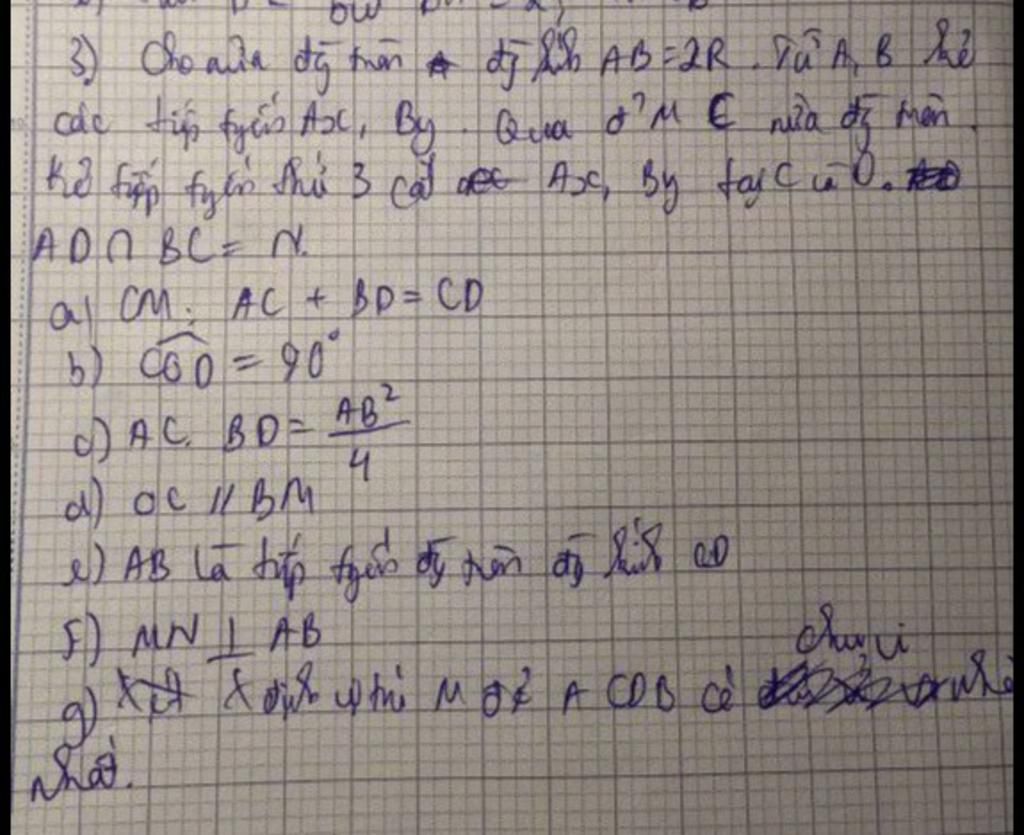 3) Cho nửa đg tròn đg kính AB = 2R. Từ A, B kẻ
các tiếp tuyến Ax, By. Qua đ' M ∈ nửa đg tròn.
Kẻ tiếp tuyến thứ 3 cắt Ax, By tại C và D.
AD ∩ BC = N.
a) CM: AC + BD = CD
b) \widehat{COD} = 90°
c) AC. BD = \frac{AB^2}{4}
d) OC // BM
e) AB là tiếp tuyến đg tròn đg kính CD
f) MN ⊥ AB
chu vi
g) X định vị trí M để ACDB có nhỏ
nhất.